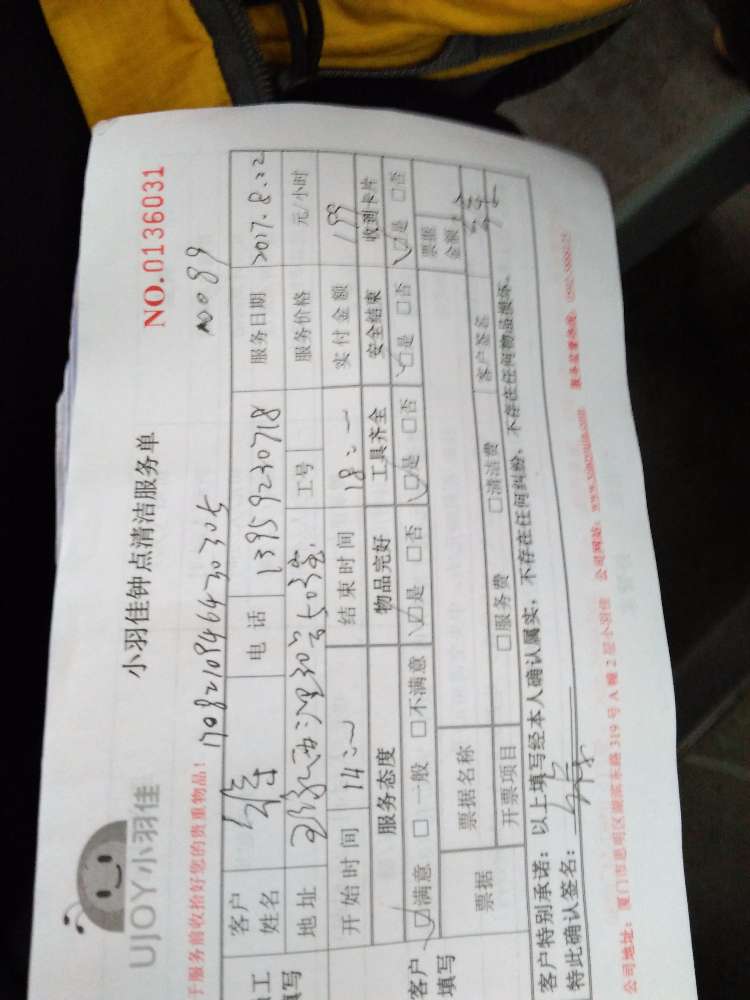 UJOY小羽佳
小羽佳钟点清洁服务单
NO.0136031
于服务前收拾好您的贵重物品!
17082109464230305
客户姓名 电话 13959230718 服务日期 2017.8.22
地址 工号 服务价格 元/小时
开始时间 14: 结束时间 18: 实付金额 199
服务态度 物品完好 工具齐全 安全结束 收到卡片
☑满意 □一般 □不满意 ☑是 □否 ☑是 □否 ☑是 □否 ☑是 □否
客户填写
票据 票据名称 票据金额
开票项目 □服务费 □清洁费 客户签名
客户特别承诺:以上填写经本人确认属实,不存在任何纠纷,不存在任何物品损坏。
特此确认签名:
公司地址:厦门市思明区湖滨东路319号A幢2层小羽佳 公司网站: 服务监督热线: